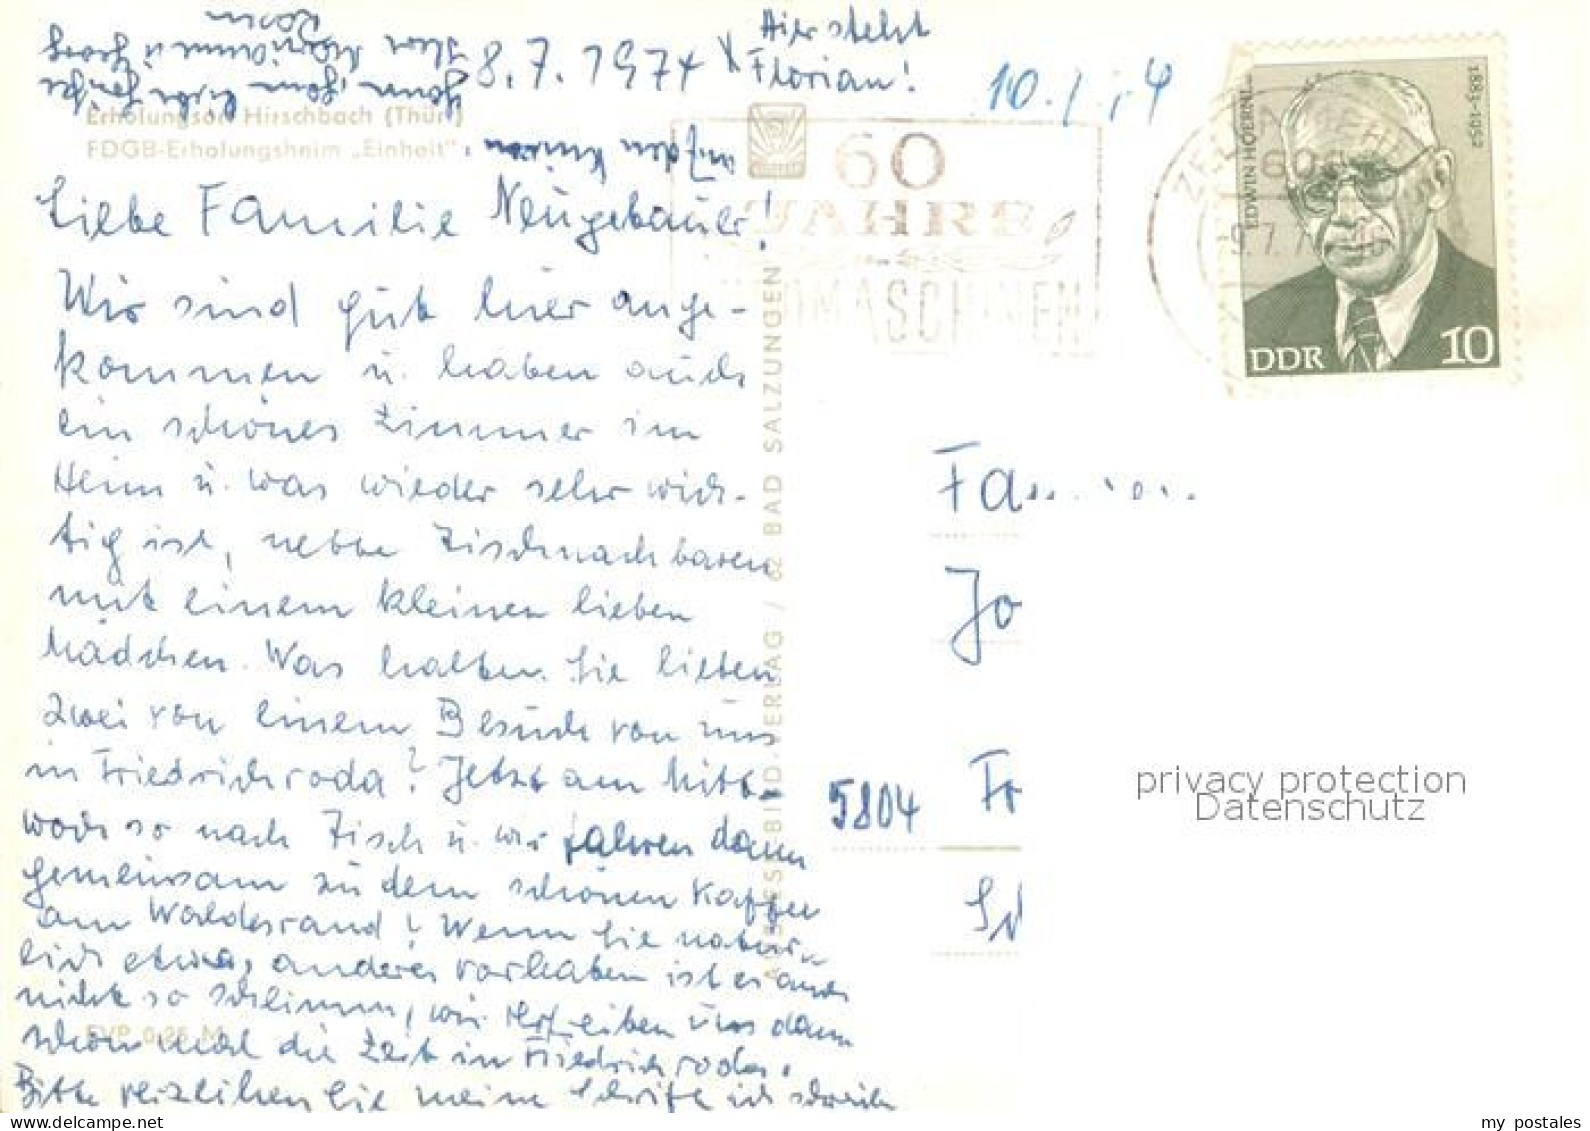 Hier steht
8.7.1974 x Florian!
Erholungsort Hirschbach (Thür)
FDGB-Erholungsheim „Einheit"
Liebe Familie Neugebauer!
Wir sind gut hier ange-
kommen u. haben auch
ein schönes Zimmer im
Heim u. was wieder sehr wich-
tig ist, nette Tischnachbaren
mit einem kleinen lieben
Mädchen. Was halten Sie lieben
zwei von einem Besuch von uns
in Friedrichroda? Jetzt am Mitt-
woch so nach Tisch u. wir fahren dann
gemeinsam zu dem schönen Kaffee
am Waldesrand! Wenn Sie natür-
lich etwas anderes vorhaben ist es auch
nicht so schlimm, wir vertreiben uns dann
schon mal die Zeit in Friedrichroda.
Bitte verzeihen Sie meine Schrift ich schreib
auf den Knien.
Marianne u. Georg
EVP 0,25 M
BILD-VERLAG / 62 BAD SALZUNGEN
60
JAHRE
9.7.7
EDWIN HOERNLE
1883-1952
DDR 10
Fa
Jo
5804 Fr
privacy protection
Datenschutz
my postales